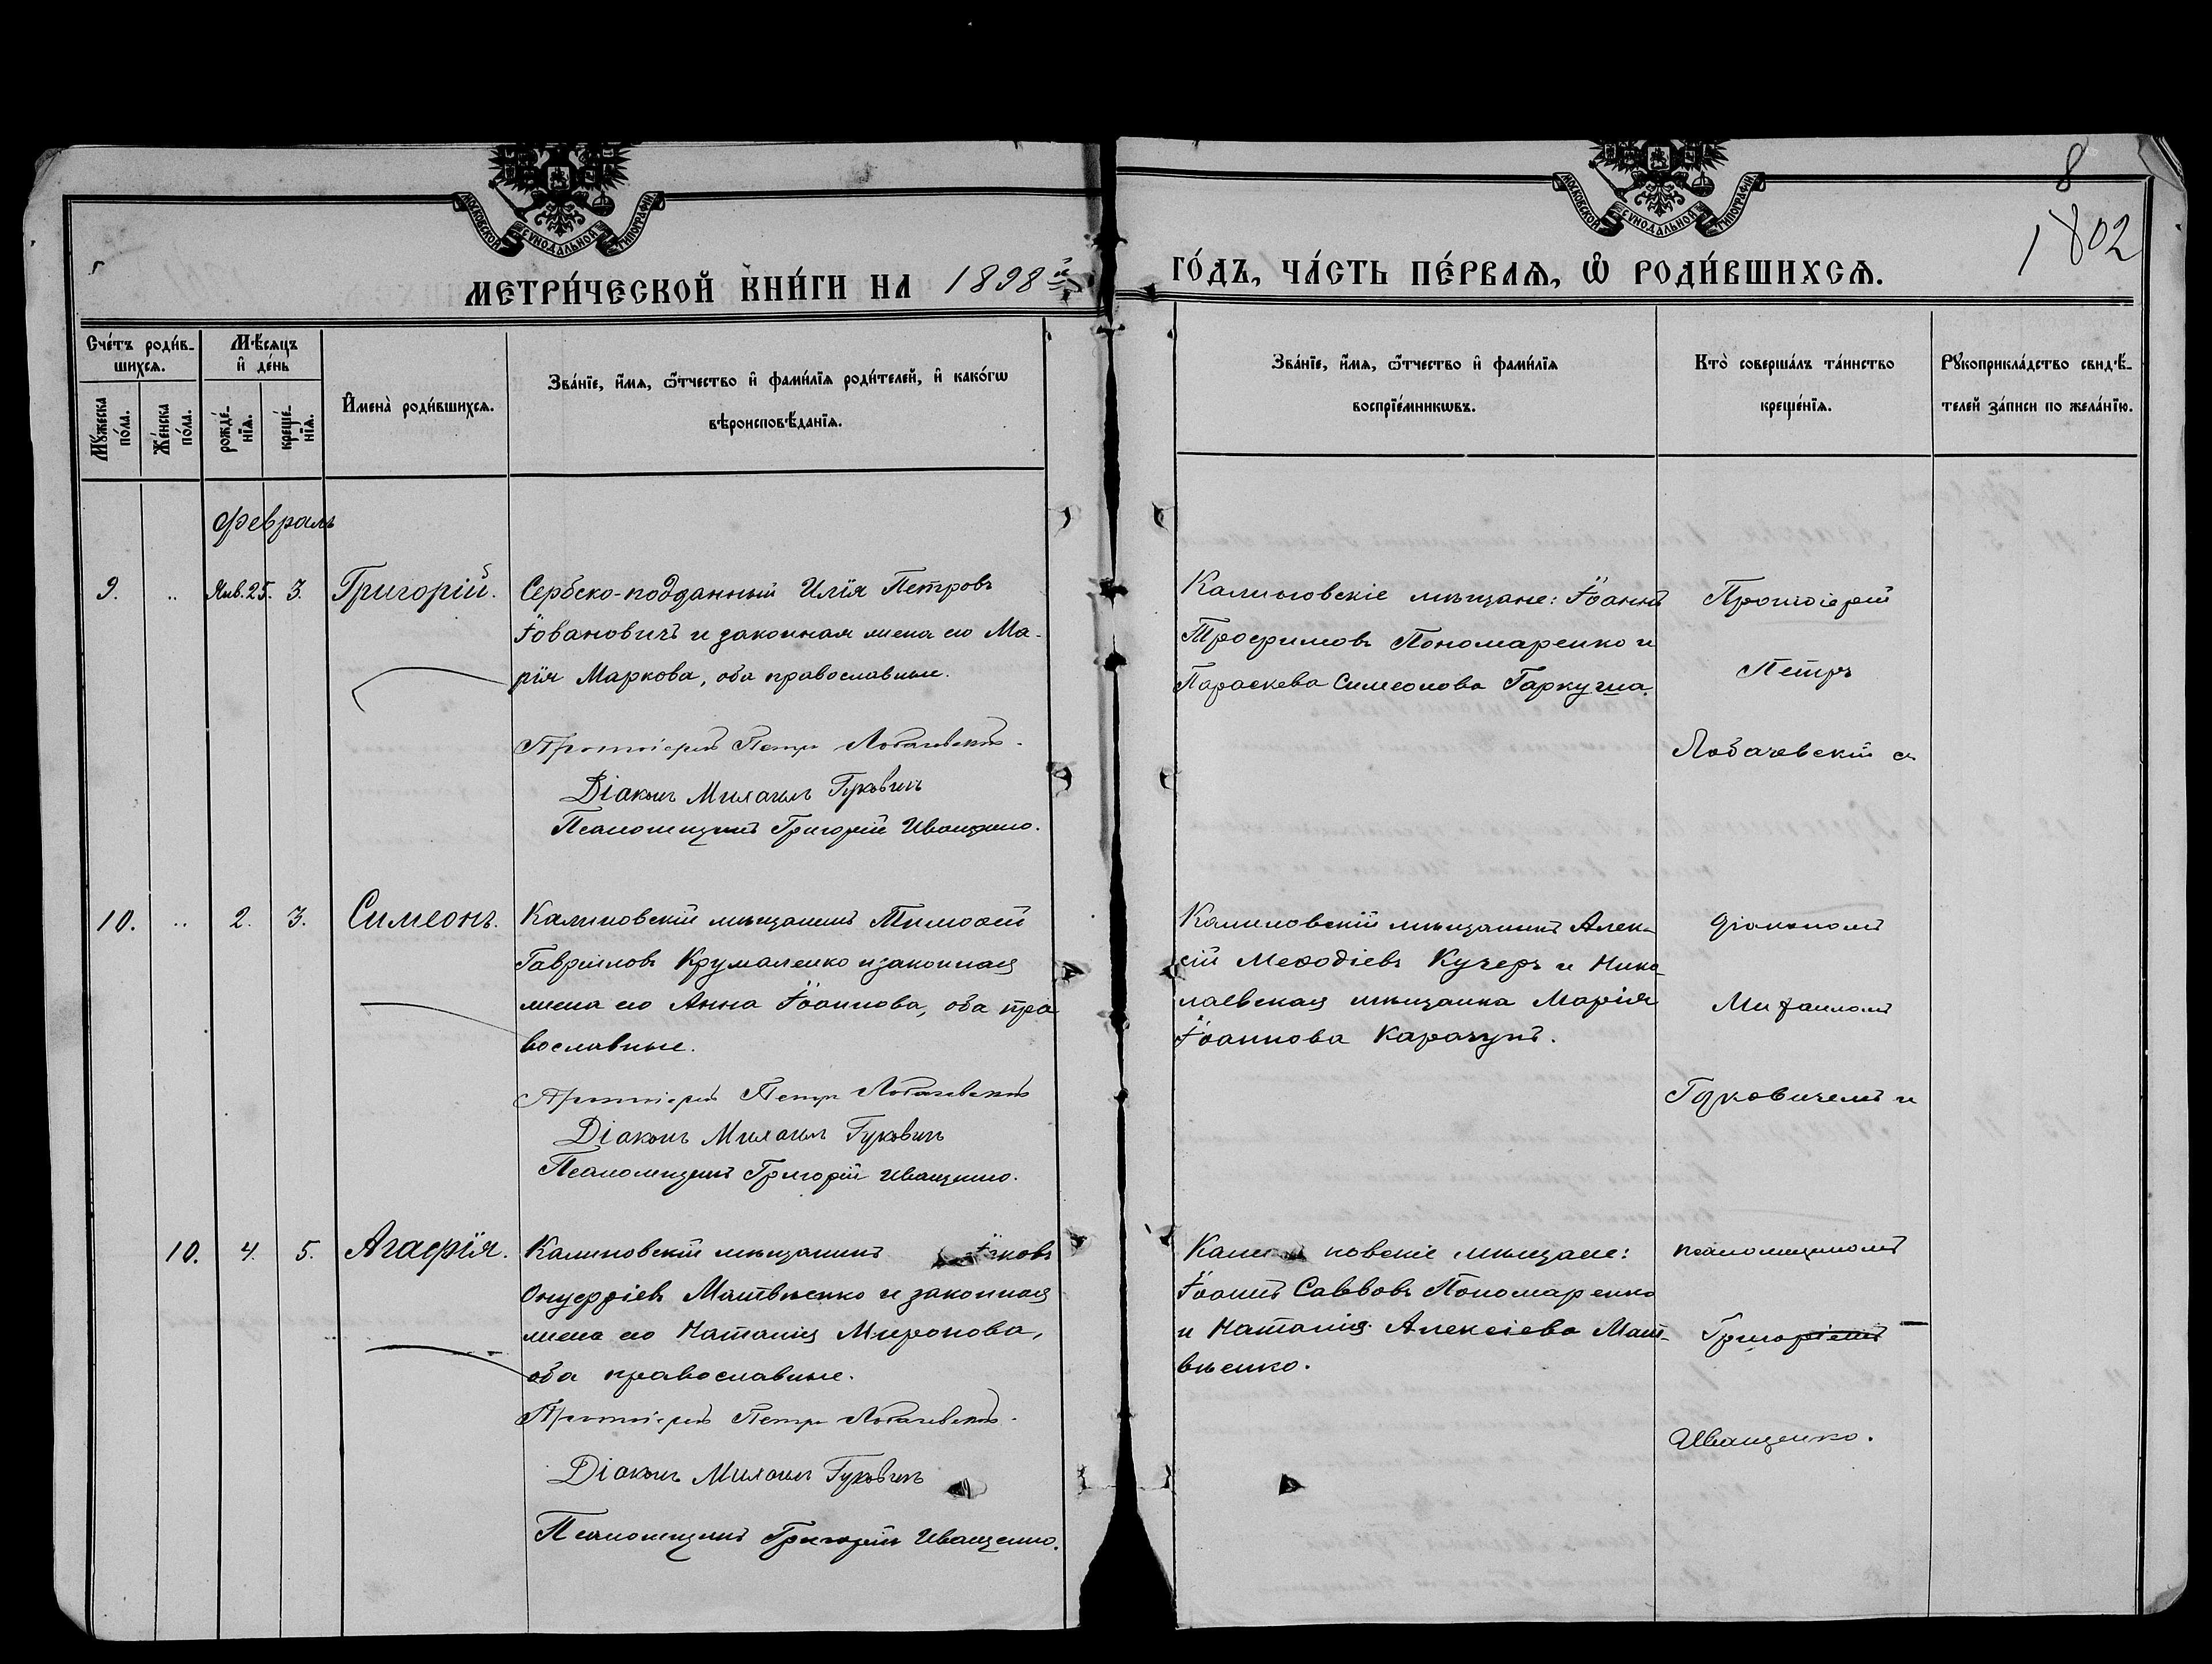 МОСКОВСКОЙ СѴНОДАЛЬНОЙ ТИПОГРАФІИ.
МОСКОВСКОЙ СѴНОДАЛЬНОЙ ТИПОГРАФІИ.
8
1802
МЕТРИ́ЧЕСКОЙ КНИ́ГИ НА 1898й
ГО́ДЪ, ЧА́СТЬ ПЕ́РВАѦ, Ѡ РОДИ́ВШИХСѦ.
Сче́тъ роди́в-
шихсѧ.
Мꙋ́жеска по́ла.
Же́нска по́ла.
Мѣ́сѧцъ
и҆ де́нь
рожде́-
нїѧ.
креще́-
нїѧ.
И҆мена̀ роди́вшихсѧ.
Зва́нїе, и҆́мѧ, ѻ҆́тчество и҆ фами́лїѧ роди́телей, и҆ како́гѡ
вѣроисповѣ́данїѧ.
Зва́нїе, и҆́мѧ, ѻ҆́тчество и҆ фами́лїѧ
воспрїе́мникѡвъ.
Кто̀ соверша́лъ та́инство
креще́нїѧ.
Рꙋкоприкла́дство свидѣ́-
телей за́писи по жела́нїю.
Февраль
9. „ Янв. 25. 3. Григорій.
Сербско-подданный Илія Петровъ
Іовановичъ и законная жена его Ма-
рія Маркова, оба православные.
Протоіерей Петръ Лобачевскій.
Діаконъ Михаилъ Гуковичъ
Псаломщикъ Григорій Иващенко.
Калиновскіе мѣщане: Іоаннъ
Трофимовъ Пономаренко и
Параскева Симеонова Гаркуша.
Протоіерей
Петръ
Лобачевскій съ
10. „ 2. 3. Симеонъ.
Калиновскій мѣщанинъ Тимоѳей
Гавріиловъ Крумаленко и законная
жена его Анна Іоаннова, оба пра
вославные.
Протоіерей Петръ Лобачевскій
Діаконъ Михаилъ Гуковичъ
Псаломщикъ Григорій Иващенко.
Калиновскій мѣщанинъ Алек-
сій Меѳодіевъ Кучеръ и Нико
лаевская мѣщанка Марія
Іоаннова Карачунъ.
діакономъ
Михаиломъ
Гуковичемъ и
10. 4. 5. Агафія.
Калиновскій мѣщанинъ Іаковъ
Онуфріевъ Матвѣенко и законная
жена его Наталія Миронова,
оба православные.
Протоіерей Петръ Лобачевскій.
Діаконъ Михаилъ Гуковичъ
Псаломщикъ Григорій Иващенко.
новскіе мѣщане:
Іоаннъ Савовъ Пономаренко
и Наталія Алексіева Мат-
вѣенко.
псаломщикомъ
Григоріемъ
Иващенко.